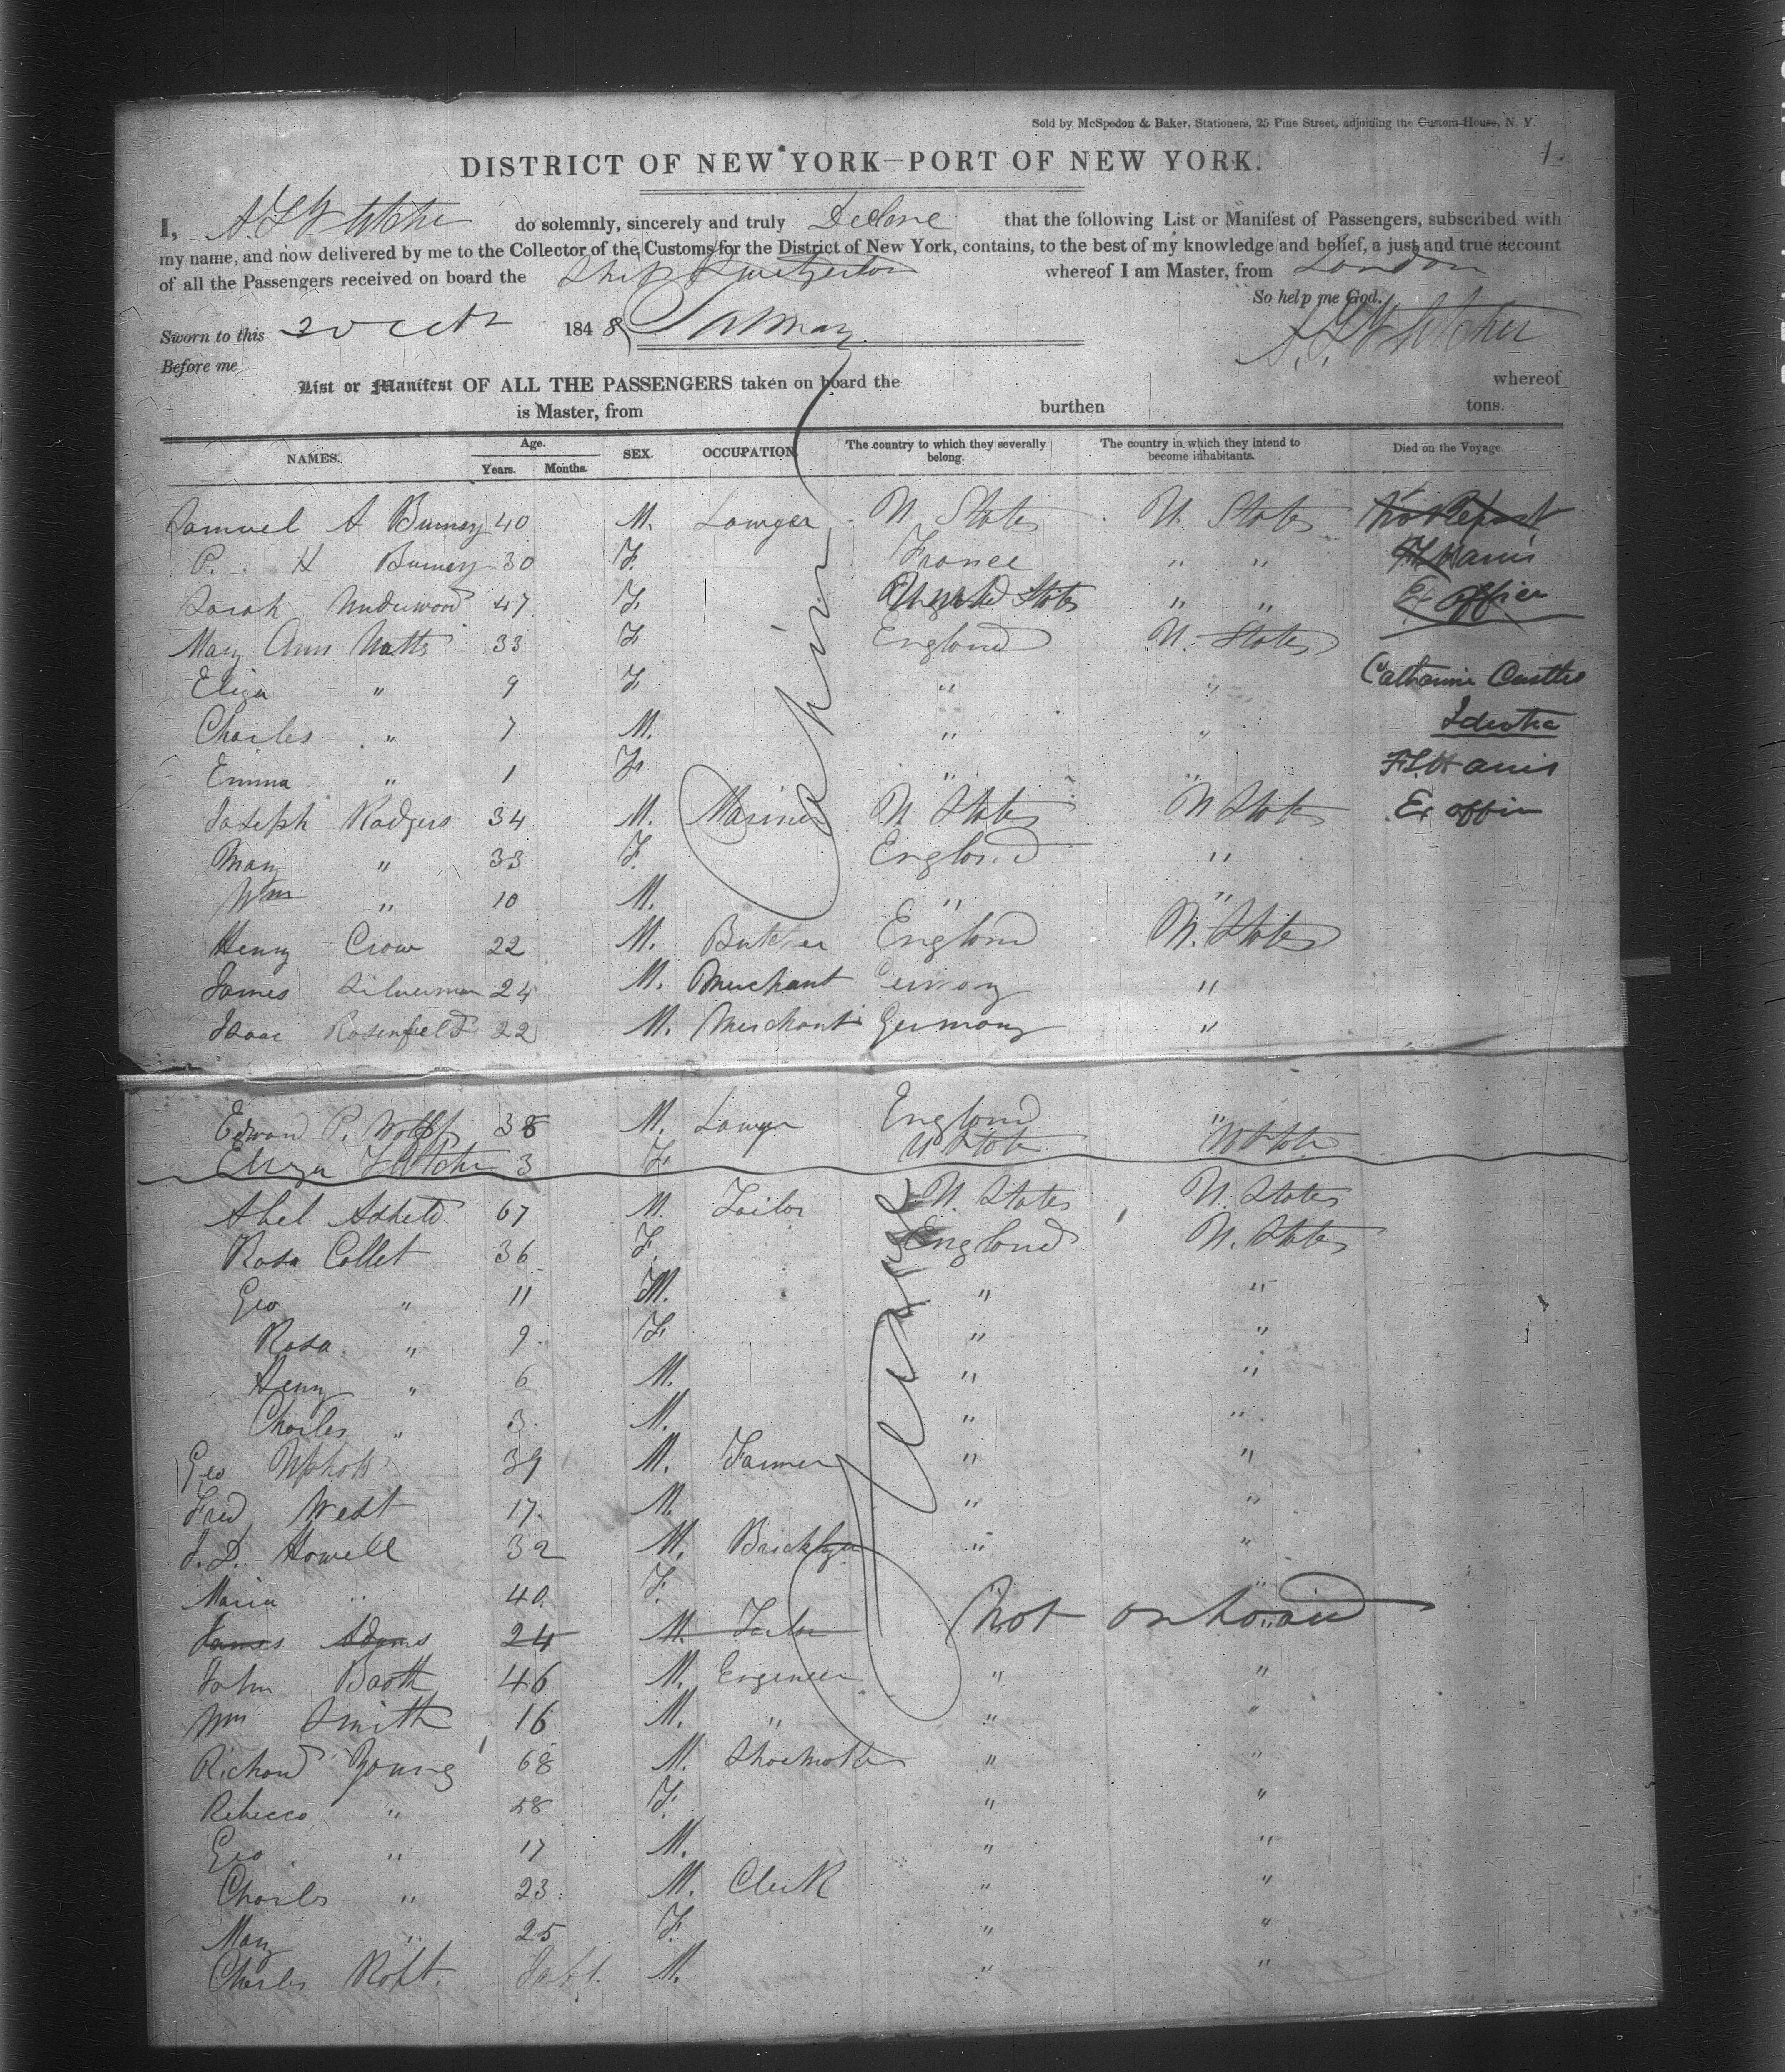 Sold by McSpedon & Baker, Stationers, 25 Pine Street, adjoining the Custom-House, N. Y.
1.
DISTRICT OF NEW YORK—PORT OF NEW YORK.
I, do solemnly, sincerely and truly Declare that the following List or Manifest of Passengers, subscribed with
my name, and now delivered by me to the Collector of the Customs for the District of New York, contains, to the best of my knowledge and belief, a just and true account
of all the Passengers received on board the Ship whereof I am Master, from London
So help me God.
Sworn to this 1848
Before me
List or Manifest OF ALL THE PASSENGERS taken on board the whereof
is Master, from burthen tons.
NAMES. Age. Years. Months. SEX. OCCUPATION. The country to which they severally belong. The country in which they intend to become inhabitants. Died on the Voyage.
Samuel A 40 M. Lawyer U. States U. States
P. H 30 F. France " "
Sarah Underwood 47 F. States " "
Mary Ann Watts 33 F. England U. States
Eliza " 9 F. " " Catharine Castles
Charles " 7 M. " "
Emma " 1 F. " " F.L. Harris
Joseph Rodgers 34 M. Mariner U States U States Ex
Mary " 33 F. England "
Wm " 10 M. " "
Henry Crow 22 M. Butcher England U. States
James Silverman 24 M. Merchant Germany "
Isaac Rosenfeld 22 M. Merchant Germany "
Cabin
Edward P. 38 M. Lawyer England "
Eliza Fletcher 3 F. U State U State
Abel 67 M. Tailor U. States U. States
Rosa Collet 36 F. England U. States
Geo " 11 M. " "
Rosa " 9 F. " "
Henry " 6 M. " "
Charles " 3 M. " "
Geo 39 M. Farmer " "
Fred West 17 M. " "
J. D. Howell 32 M. Bricklayer " "
Maria " 40 F. "
James Adams 24 M. Tailor Not on board
John Booth 46 M. Engineer " "
Wm Smith 16 M. " " "
Richard Young 68 M. Shoemaker " "
Rebecca " F. " "
Geo " 17 M. " "
Charles " 23 M. Clerk " "
Mary " 25 F. " "
Charles M. " "